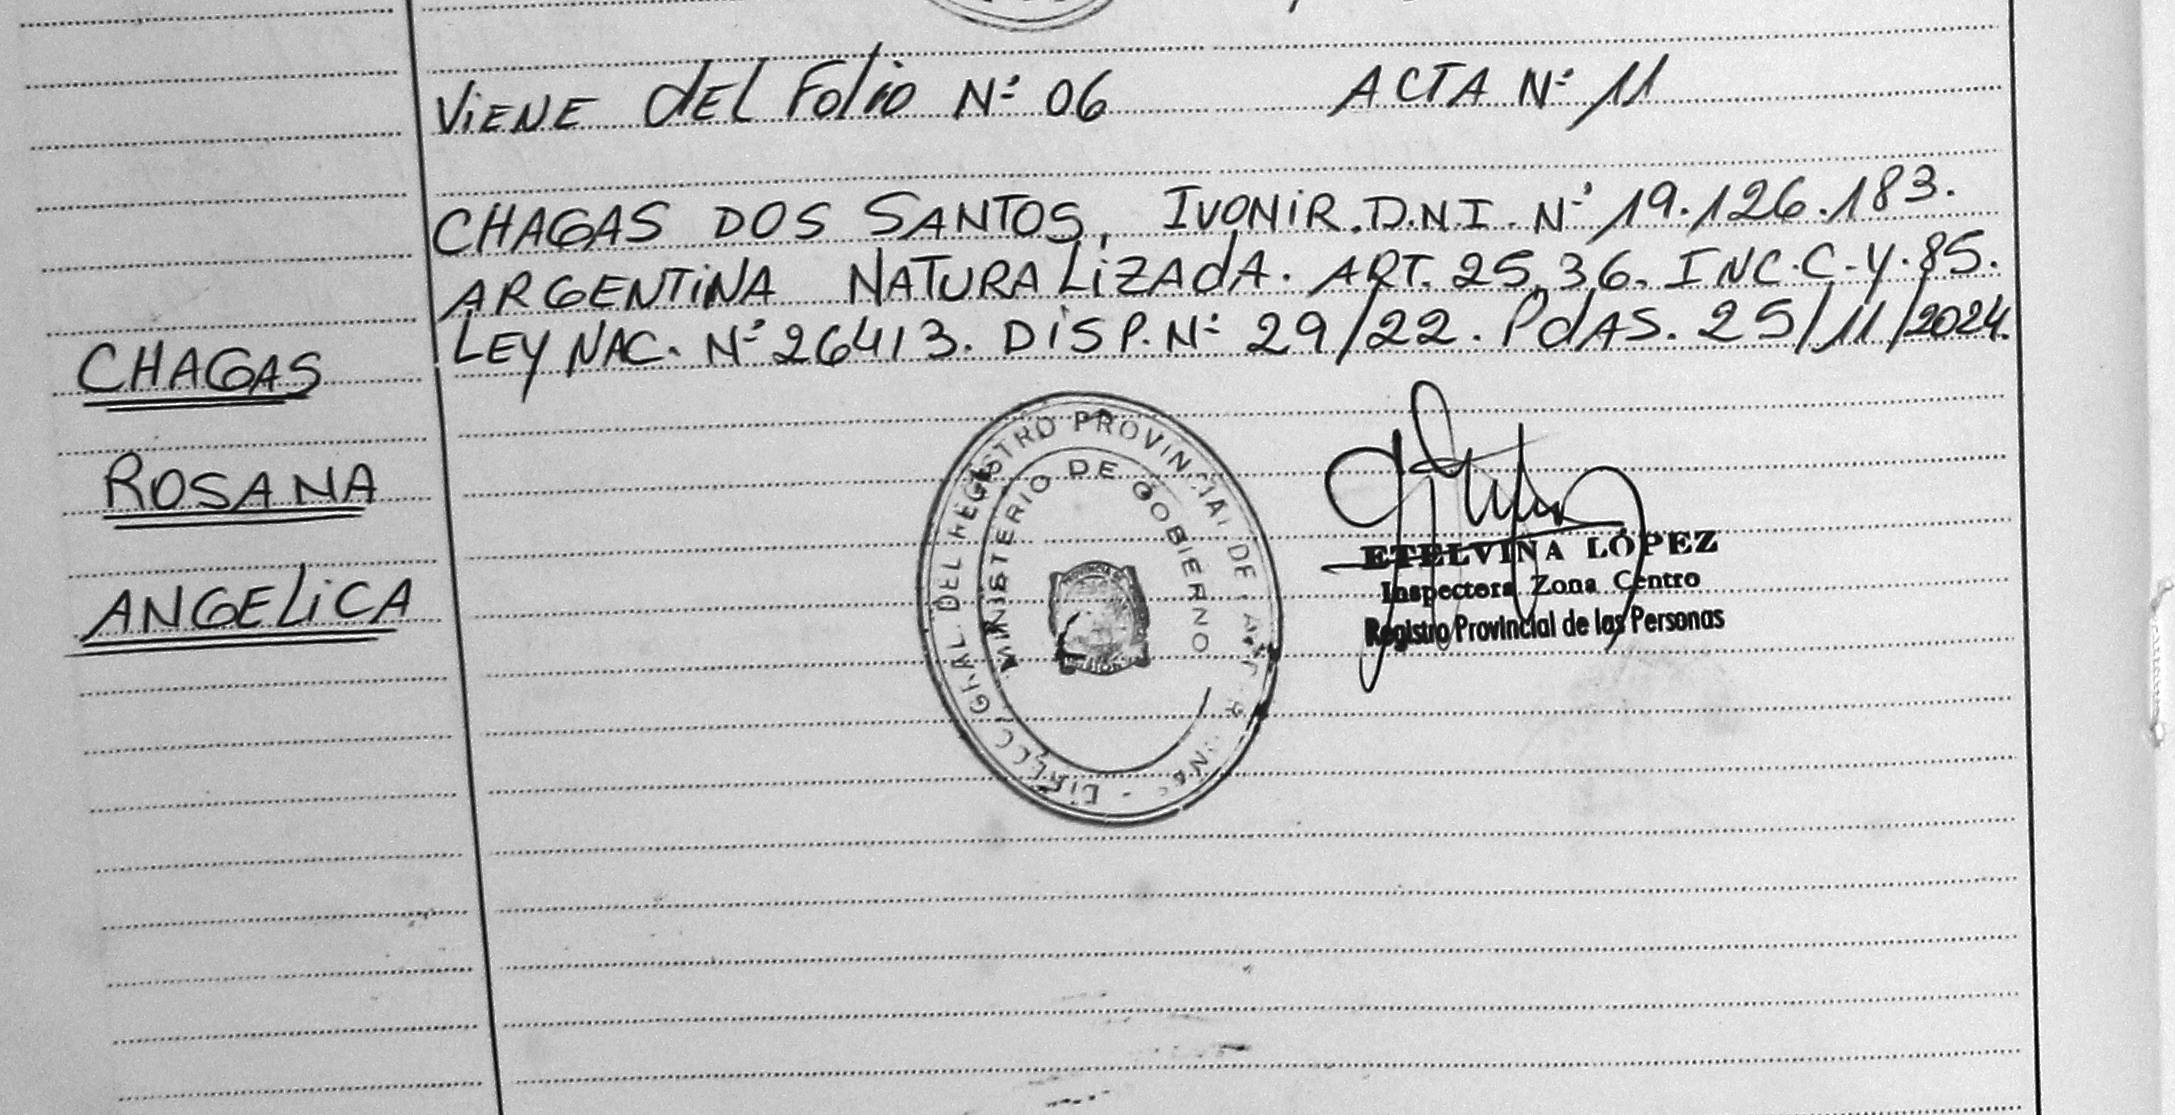 VIENE DEL FOLIO Nº 06 ACTA Nº 11
CHAGAS DOS SANTOS, IVONIR. D.N.I. Nº 19.126.183.
ARGENTINA NATURALIZADA. ART. 25, 36. INC. C. Y. 85.
LEY NAC. Nº 26413. DISP. Nº 29/22. PDAS. 25/11/2024.
CHAGAS
ROSANA
ANGELICA
GRAL. DEL REGISTRO PROVINCIAL DE
MINISTERIO DE GOBIERNO
ETELVINA LÓPEZ
Inspectora Zona Centro
Registro Provincial de las Personas